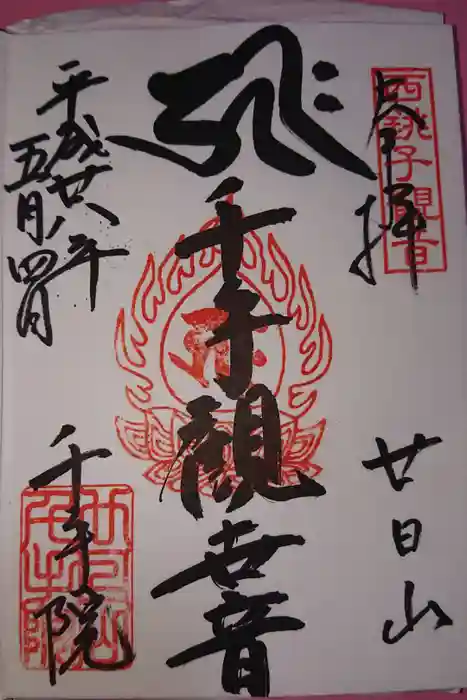 奉拝
西銚子観音
廿日山
ह्रीः
千手観世音
平成廿八年
五月四日
千手院